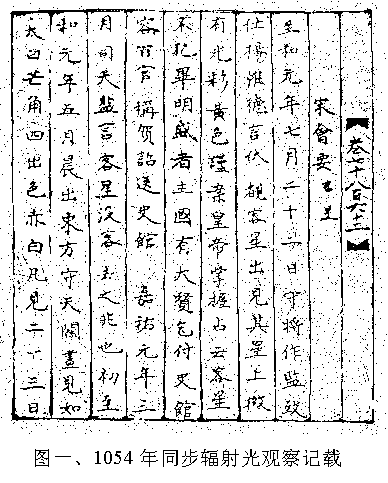 卷七千八百六十三
宋會要
至和元年七月二十二日守將作監致
仕楊惟德言伏覩客星出見其星上微
有光彩黃色謹案皇帝掌握占云客星
不犯畢明盛者主國有大賢乞付史館
容百官稱賀詔送史館 嘉祐元年三
月司天監言客星沒客去之兆也初至
和元年五月晨出東方守天關晝見如
太白芒角四出色赤白凡見二十三日
图一、1054年同步辐射光观察记载